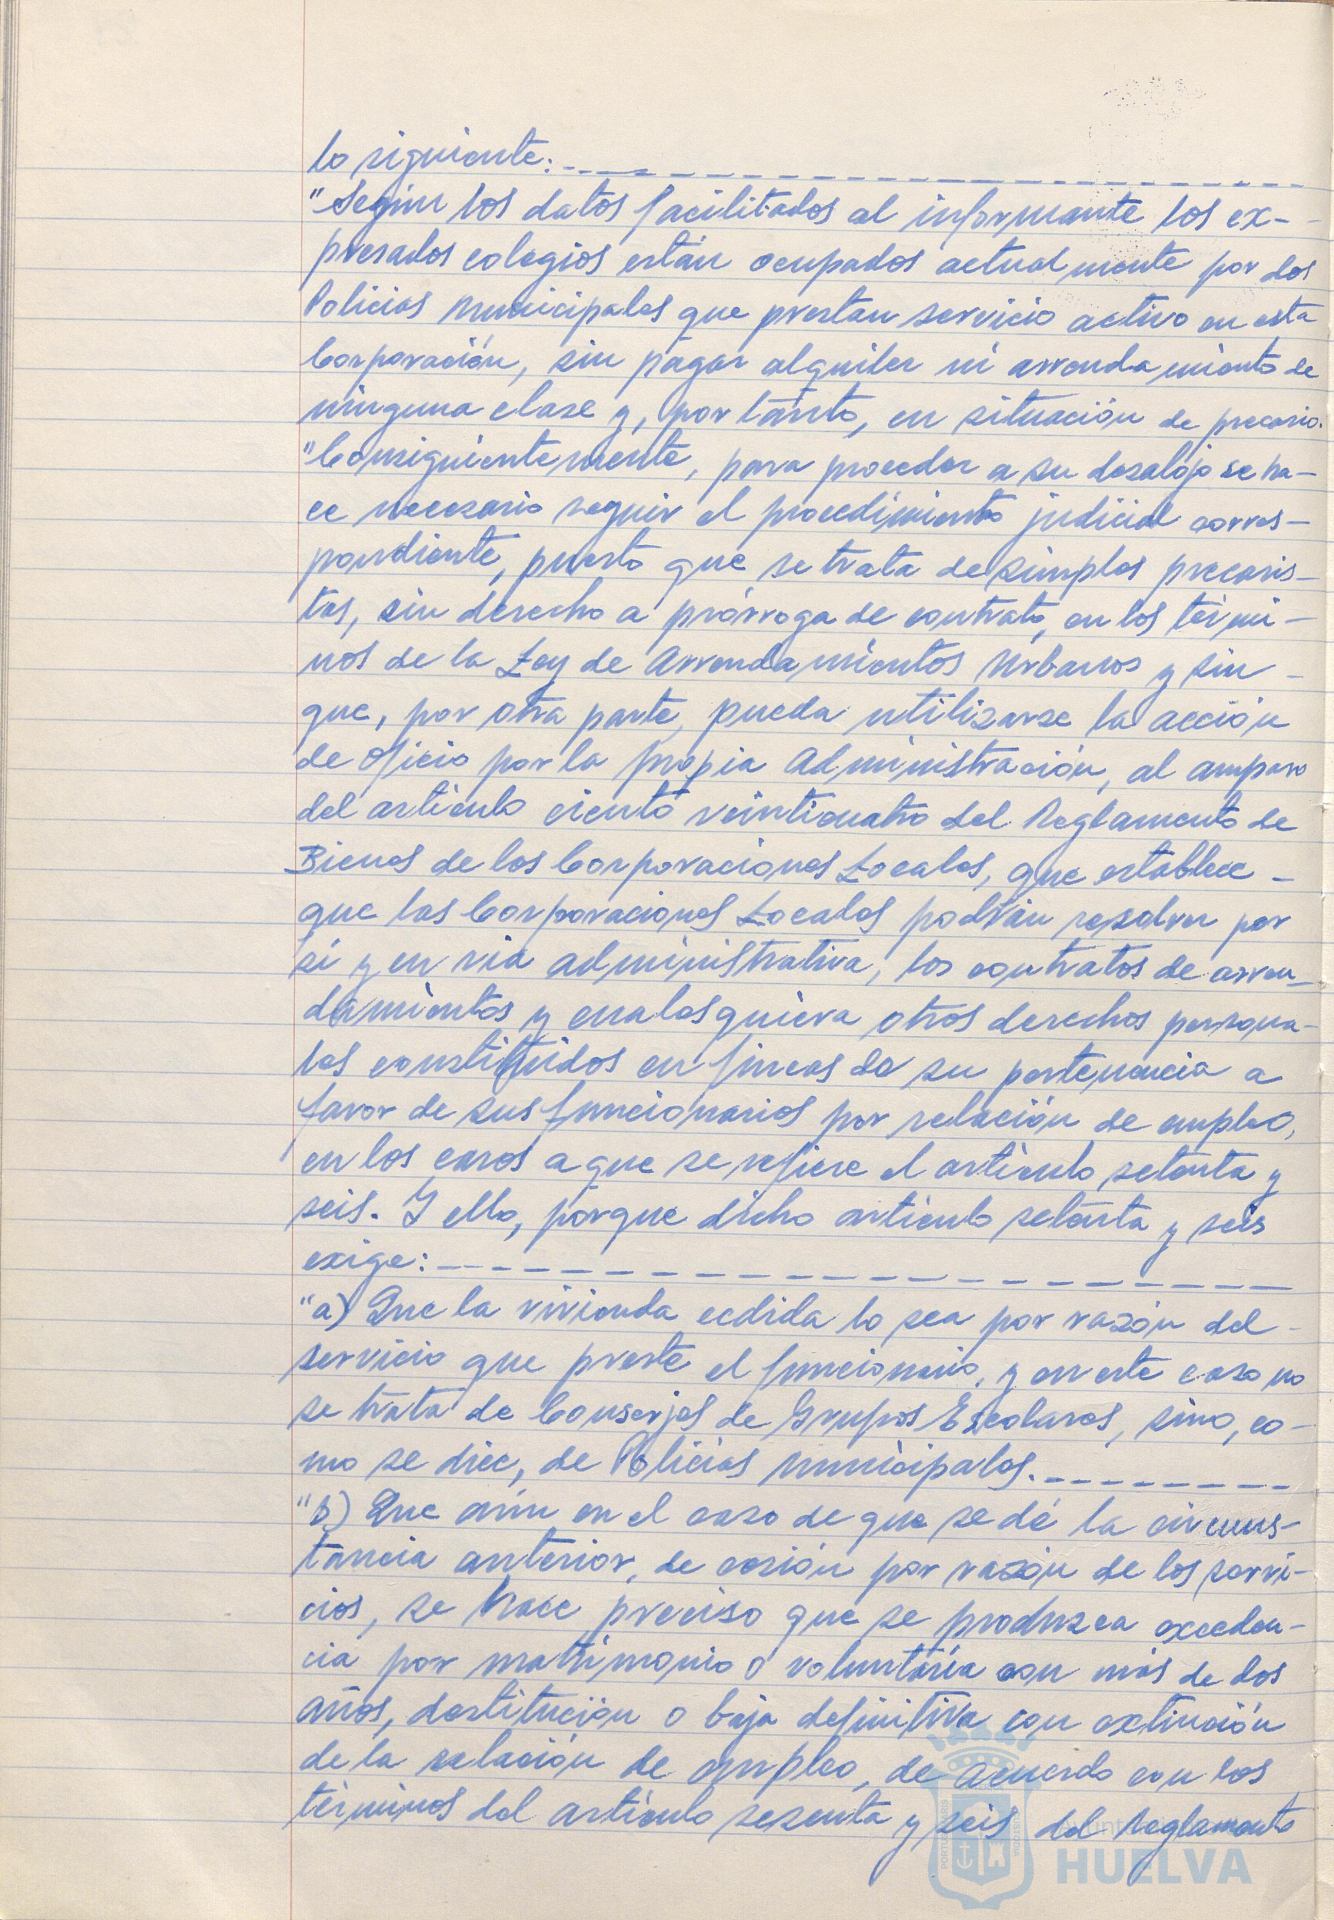 lo siguiente:
"Según los datos facilitados al informante los ex-
presados colegios están ocupados actualmente por dos
Policías Municipales que prestan servicio activo en esta
Corporación, sin pagar alquiler ni arrendamiento de
ninguna clase y, por tánto, en situación de precario.
"Consiguientemente, para proceder a su desalojo se ha-
ce necesario seguir el procedimiento judicial corres-
pondiente, puesto que se trata de simples precaris-
tas, sin derecho a prórroga de contrato, en los térmi-
nos de la Ley de Arrendamientos Urbanos y sin
que, por otra parte, pueda utilizarse la acción
de oficio por la propia Administración, al amparo
del artículo ciento veinticuatro del Reglamento de
Bienes de las Corporaciones Locales, que establece
que las Corporaciones Locales podrán resolver por
sí y en via administrativa, los contratos de arren-
damientos y cualesquiera otros derechos persona-
les constituidos en fincas de su pertenencia a
favor de sus funcionarios por relación de empleo,
en los casos a que se refiere el artículo setenta y
seis. Y ello, porque dicho artículo setenta y seis
exige:
"a) Que la vivienda cedida lo sea por razón del
servicio que preste el funcionario, y en este caso no
se trata de Conserjes de Grupos Escolares, sino, co-
mo se dice, de Policías municipales.
"b) Que aún en el caso de que se dé la circuns-
tancia anterior, de cesión por razón de los servi-
cios, se hace preciso que se produzca exceden-
cia por matrimonio o voluntaria con más de dos
años, destitución o baja definitiva con extinción
de la relación de empleo, de acuerdo con los
términos del artículo sesenta y seis del Reglamento
HUELVA